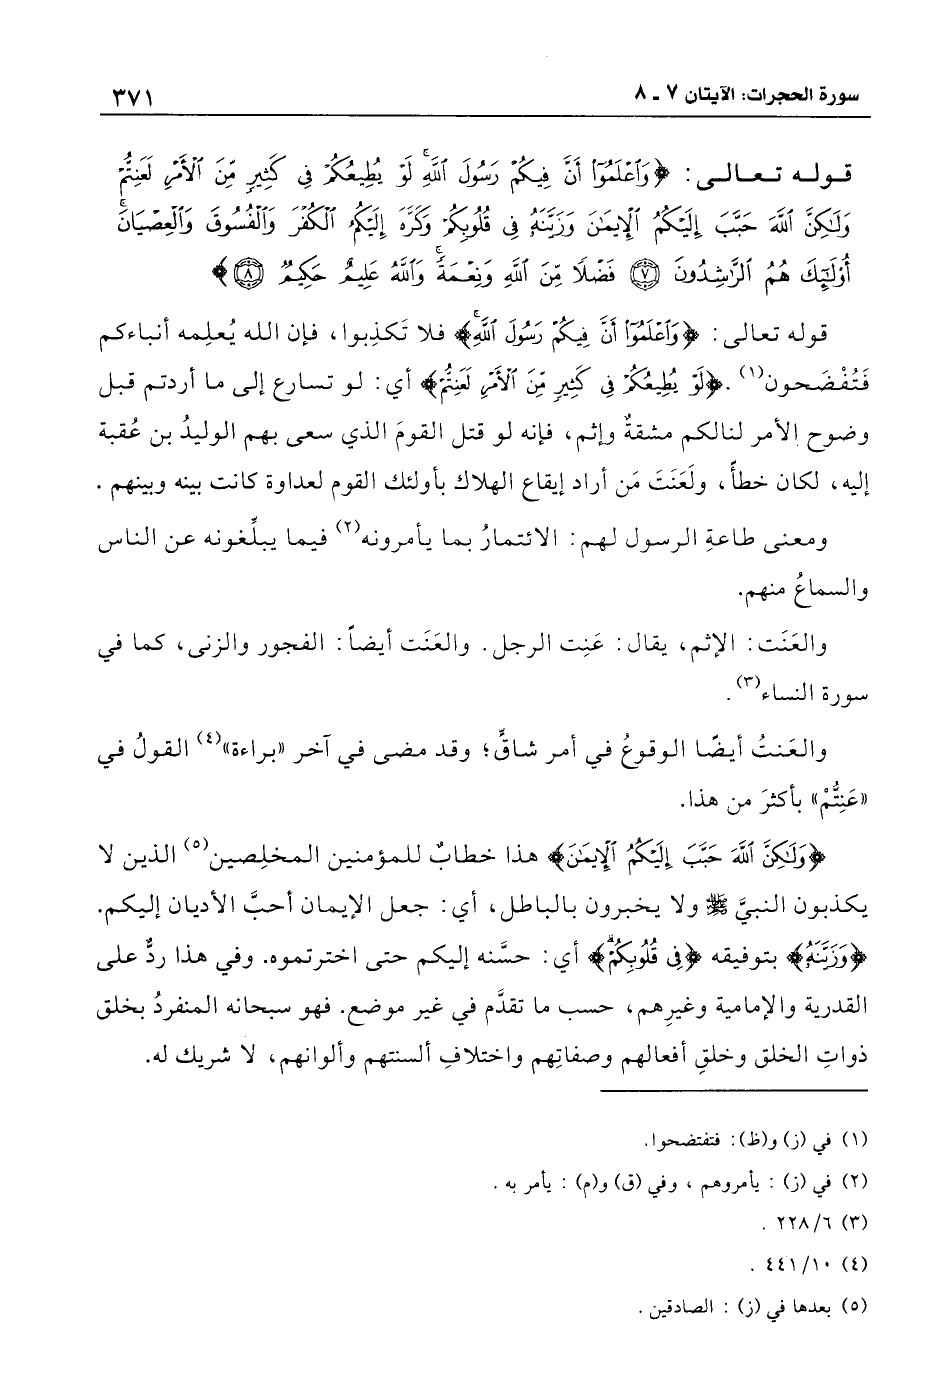 سورة الحجرات: الآيتان ٧ ـ ٨
٣٧١
قولـه تعـالـى: ﴿وَٱعْلَمُوٓا۟ أَنَّ فِيكُمْ رَسُولَ ٱللَّهِ ۚ لَوْ يُطِيعُكُمْ فِى كَثِيرٍ مِّنَ ٱلْأَمْرِ لَعَنِتُّمْ
وَلَـٰكِنَّ ٱللَّهَ حَبَّبَ إِلَيْكُمُ ٱلْإِيمَـٰنَ وَزَيَّنَهُۥ فِى قُلُوبِكُمْ وَكَرَّهَ إِلَيْكُمُ ٱلْكُفْرَ وَٱلْفُسُوقَ وَٱلْعِصْيَانَ ۚ
أُو۟لَـٰٓئِكَ هُمُ ٱلرَّٰشِدُونَ ٧ فَضْلًا مِّنَ ٱللَّهِ وَنِعْمَةً ۚ وَٱللَّهُ عَلِيمٌ حَكِيمٌ ٨﴾
قوله تعالى: ﴿وَٱعْلَمُوٓا۟ أَنَّ فِيكُمْ رَسُولَ ٱللَّهِ ۚ﴾ فلا تَكذِبوا، فإن الله يُعلِمه أنباءكم
فَتُفْضَحون(١). ﴿لَوْ يُطِيعُكُمْ فِى كَثِيرٍ مِّنَ ٱلْأَمْرِ لَعَنِتُّمْ﴾ أي: لو تسارع إلى ما أردتم قبل
وضوح الأمر لنالكم مشقةٌ وإثم، فإنه لو قتل القومَ الذي سعى بهم الوليدُ بن عُقبة
إليه، لكان خطأً، ولَعَنَتَ مَن أراد إيقاع الهلاك بأولئك القوم لعداوة كانت بينه وبينهم.
ومعنى طاعةِ الرسول لهم: الائتمارُ بما يأمرونه(٢) فيما يبلِّغونه عن الناس
والسماعُ منهم.
والعَنَت: الإثم، يقال: عَنِت الرجل. والعَنَت أيضاً: الفجور والزنى، كما في
سورة النساء(٣).
والعَنتُ أيضًا الوقوعُ في أمر شاقٍّ؛ وقد مضى في آخر «براءة»(٤) القولُ في
«عَنِتُّمْ» بأكثرَ من هذا.
﴿وَلَـٰكِنَّ ٱللَّهَ حَبَّبَ إِلَيْكُمُ ٱلْإِيمَـٰنَ﴾ هذا خطابٌ للمؤمنين المخلِصين(٥) الذين لا
يكذبون النبيَّ ﷺ ولا يخبرون بالباطل، أي: جعل الإيمان أحبَّ الأديان إليكم.
﴿وَزَيَّنَهُۥ﴾ بتوفيقه ﴿فِى قُلُوبِكُمْ﴾ أي: حسَّنه إليكم حتى اخترتموه. وفي هذا ردٌّ على
القدرية والإمامية وغيرِهم، حسب ما تقدَّم في غير موضع. فهو سبحانه المنفردُ بخلق
ذواتِ الخلق وخلقِ أفعالهم وصفاتِهم واختلافِ ألسنتهم وألوانهم، لا شريك له.
(١) في (ز) و(ظ): فتفتضحوا.
(٢) في (ز) : يأمروهم ، وفي (ق) و(م) : يأمر به .
(٣) ٢٢٨/٦ .
(٤) ٤٤١/١٠ .
(٥) بعدها في (ز) : الصادقين .